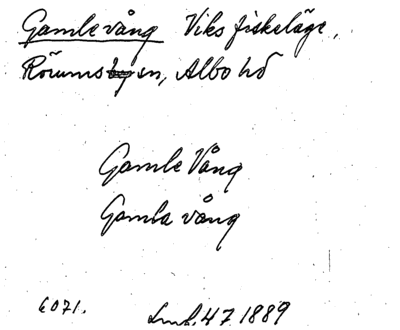 Gamlevång Viks fiskeläge,
Rörums sn, Albo hd
Gamle Vång
Gamla vång
6071. Lmf. 47 1889